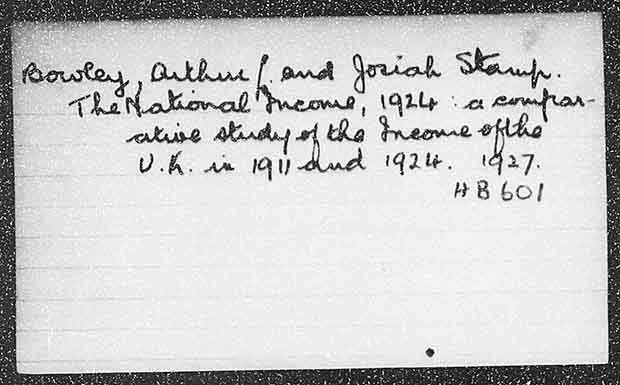 Bowley, Arthur L. and Josiah Stamp.
The National Income, 1924 : a compar-
ative study of the Income of the
U.K. in 1911 and 1924. 1927.
HB601